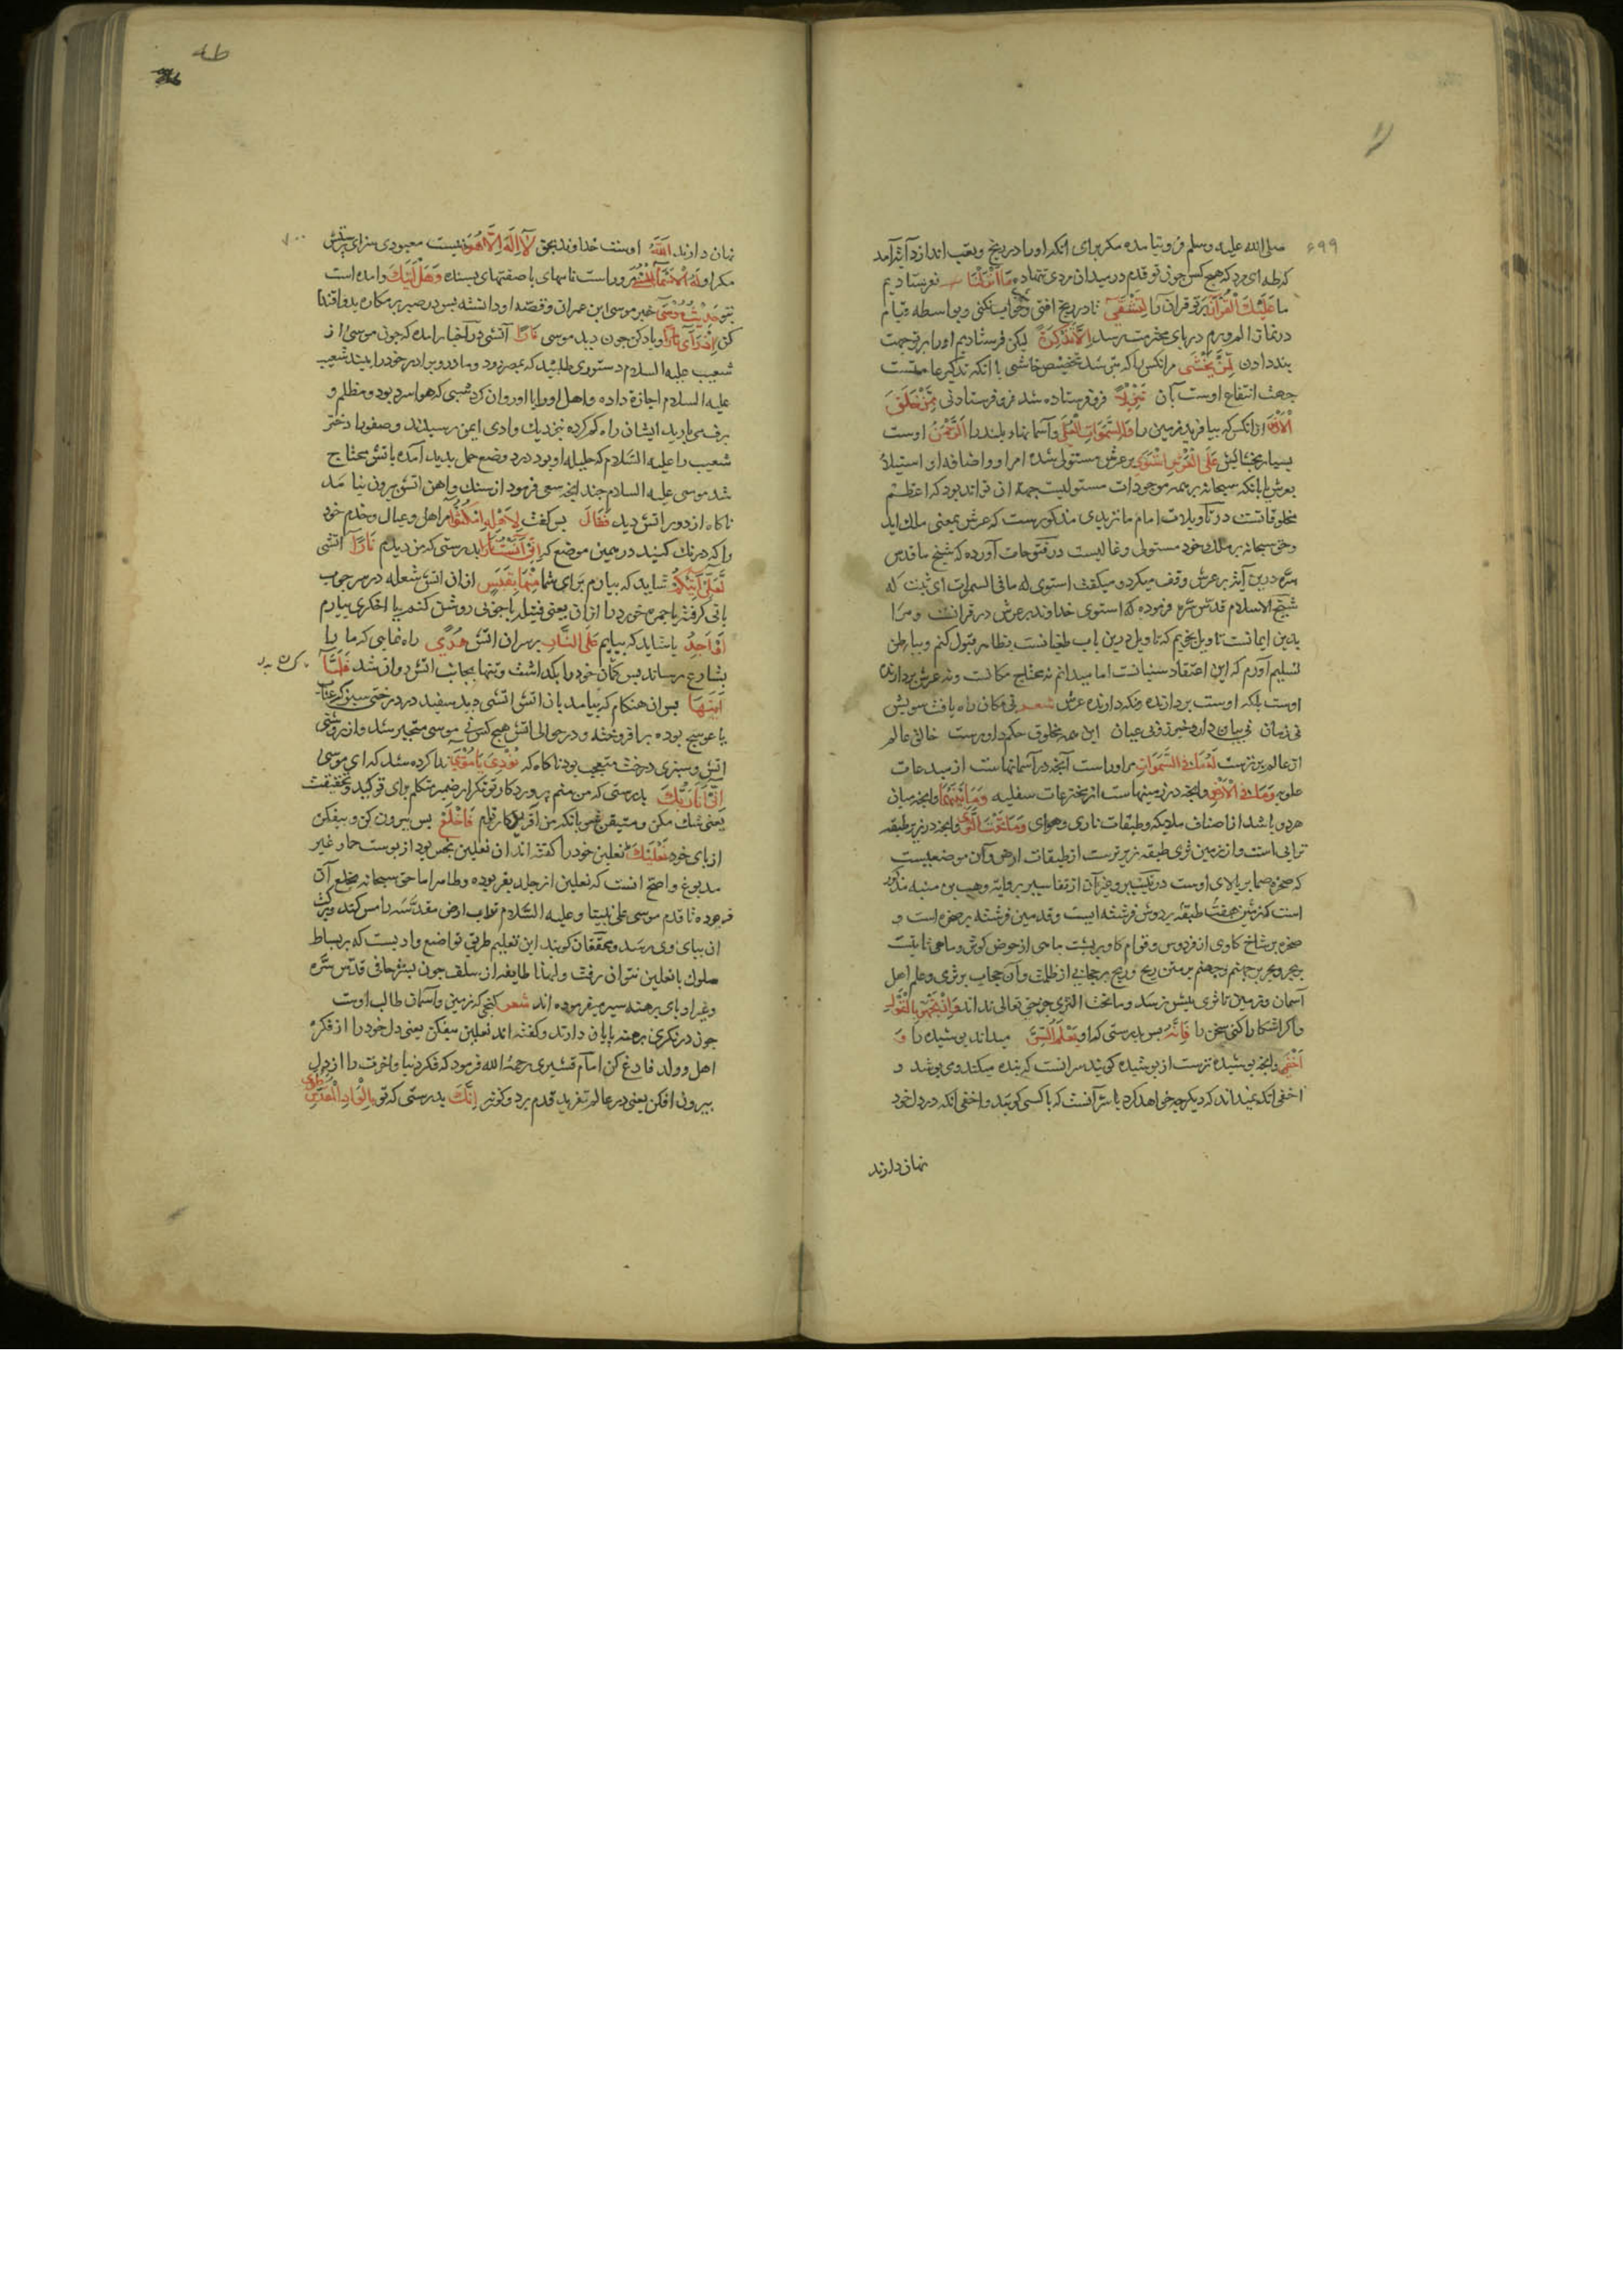 ۶۹۹
صلی الله علیه وسلم فرو نیامده مکر برای انکه او را در رنج و تعب اندازد آیة آمد
که طه ای مرد که هیچ کس چون تو قدم در میدان مردی ننهاده مَا اَنْزَلْنَا نفرستادیم
ما عَلَیْكَ الْقُرْآنَ بر تو قران را لِتَشْقَیٰ تا در رنج افتی و خواب نکنی و بواسطه قیام
در نماز الم و ورم در پای محترمت رسد اِلَّا تَذْکِرَةً لیکن فرستادیم او را بر تو جهت
پند دادن لِمَنْ یَخْشَی مر انکس را که بترسد تخصیص خاشی با انکه تذکیر عامست
جهت انتفاع اوست بآن تَنْزِیلاً فرو فرستاده شد فرو فرستادنی مِمَّنْ خَلَقَ
الْاَرْضَ از انکس که بیافرید زمین را وَالسَّمٰوَاتِ الْعُلَی وآسمانهاء بلند را اَلرَّحْمٰنُ اوست
بسیار بخشایش عَلَی الْعَرْشِ اسْتَوَی بر عرش مستولی شده امر او واضافه او استیلا
بعرش با انکه سبحانه بر همه موجودات مستولیست جهة ان تواند بود که اعظم
مخلوقاتست در تأویلات امام ماتریدی مذکورست که عرش بمعنی ملك اید
وحق سبحانه بر ملك خود مستولی و غالبست در فتوحات آورده که شیخ ما قدس
سره درین آیة بر عرش وقف میکرد و میکفت استوی له ما فی السموات ای ثبت له
شیخ الاسلام قدس سره فرموده که استوی خداوند بر عرش در قرانست ومرا
بدین ایمانست تاویل نجویم که تاویل درین باب طغیانست بظاهر قبول کنم و بباطن
تسلیم آورم که این اعتقاد سنیانست اما میدانم نه محتاج مکانست ونه عرش بردارنده
اوست بلکه اوست بردارنده ونکه دارنده عرش شعر نی مکان راه یافت سویش
نی زمان نی بیان دارد خبر زو نی عیان این همه مخلوق حکم داورست خالق عالم
از عالم برترست لَهُ مَا فِی السَّمٰوَاتِ مر او راست آنچه در آسمانهاست از مبدعات
علویه وَمَا فِی الْاَرْضِ وانچه در زمینهاست از مخترعات سفلیه وَمَا بَیْنَهُمَا وانچه میان
هر دو باشد از اصناف ملایکه و طبقات ناری وهوای وَمَا تَحْتَ الثَّرَی وانچه در زیر طبقه
ترابی است واز زمین ثری طبقه زیرترست از طبقات ارض وآن موضعیست
که صخره صما بر بالای اوست در تیسیر و غیر آن از تفاسیر بروایة وهب بن منبه مذکور
است که زمین هفت طبقه بر دوش فرشته ایست وقدمین فرشته بر صخره است و
صخره بر شاخ کاوی از فردوس وقوایم کاو بر پشت ماهی از حوض کوثر وماهی ثابتست
بر بحر وبحر بر جهنم وجهنم بر متن ریح وریح بر حجابی از ظلمت وآن حجاب بر ثری وعلم اهل
آسمان وزمین تا ثری بیش نرسد وما تحت الثری جز حق تعالی نداند وَاِنْ تَجْهَرْ بِالْقَوْلِ
واکر اشکارا کنی سخن را فَاِنَّهُ پس بدرستی که او یَعْلَمُ السِّرَّ میداند پوشیده را وَ
اَخْفَی وانچه پوشیده ترست از پوشیده کویند سر انست که بنده میکند ومی پوشد و
اخفی انکه نمیداند که دیکر چه خواهد کرد یا سر آنست که با کسی کوید واخفی انکه در دل خود
نهان دارند
۷۰۰
نهان دارند اَللّٰهُ اوست خداوند بحق لَا اِلٰهَ اِلَّا هُوَ نیست معبودی سزای پرستش
مکر او لَهُ الْاَسْمَاءُ الْحُسْنَی مر وراست نامهای با صفتهای پسندیده وَهَلْ اَتٰیكَ وامده است
بتو حَدِیثُ مُوسَی خبر موسی ابن عمران وقصه او دانسته پس در صبر بر مکاره بدو اقتدا
کن اِذْ رَاٰ نَارًا ویاد کن چون دید موسی نَارًا آتشی در اخبار امده که چون موسی از
شعیب علیه السلام دستوری طلبید که بمصر رود ومادر وبرادر خود را ببیند شعیب
علیه السلام اجازة داده واهل او را با او روان کرد شبی که هوا سرد بود و مظلم و
برف می بارید ایشان راه کم کرده نزدیك وادی ایمن رسیدند وصفورا دختر
شعیب را علیه السلام که حلیله او بود درد وضع حمل پدید آمده باتش محتاج
شد موسی علیه السلام چند انچه سعی فرمود از سنك واهن اتش بیرون نیامد
ناکاه از دور اتش دید فَقَالَ پس کفت لِاَهْلِهِ امْکُثُوا مر اهل وعیال وخدم خود
را که درنك کنید در همین موضع که اِنِّی اٰنَسْتُ نَارًا بدرستی که من دیدم نَارًا اتشی
لَعَلِّی اٰتِیکُمْ شاید که بیارم برای شما مِنْهَا بِقَبَسٍ از ان اتش شعله در سر چوب
اَوْ اَجِدُ یا شاید که بیابم عَلَی النَّارِ بر سر ان اتش هُدًی راه نمایی که ما را
بشارع رساند پس کسان خود را بکذاشت وتنها بجانب اتش روان شد فَلَمَّا
اَتٰیهَا پس ان هنکام که بیامد بان اتش اتشی دید سفید در درختی سبز که عناب
یا عوسج بوده برافروخته ودر حوالی اتش هیچ کس نی موسی متحیر شد واز روشنی
اتش وسبزی درخت متعجب بود ناکاه که نُودِیَ یَا مُوسَی ندا کرده شد که ای موسی
اِنِّی اَنَا رَبُّكَ بدرستی که من منم پروردکار تو تکرار ضمیر متکلم برای توکید وتحقیقست
یعنی شك مکن ومتیقن شو بانکه من آفریدکار توام فَاخْلَعْ پس بیرون کن وبیفکن
از پای خود نَعْلَیْكَ نعلین خود را کفته اند ان نعلین نجس بود از پوست حمار غیر
مدبوغ واصح انست که نعلین از جلد بقر بوده وطاهر اما حق سبحانه بخلع آن
فرموده تا قدم موسی علی نبینا وعلیه السلام تراب ارض مقدسه را مس کند وبرکت
ان بپای وی برسد ومحققان کویند این تعلیم طریق تواضع وادبست که بر بساط
ملوك با نعلین نتوان رفت ولهذا طایفه از سلف چون بشر حافی قدس سره
وغیر او پای برهنه سیر میفرموده اند شعر کنجی که زمین وآسمان طالب اوست
چون درنکری برهنه پایان دارند وکفته اند نعلین بیفکن یعنی دل خود را از فکر
اهل وولد فارغ کن امام قشیری رحمه الله فرمود که فکر دنیا واخرت را از دل
بیرون افکن یعنی در عالم تفرید قدم بر دو کون نه اِنَّكَ بدرستی که تو بِالْوَادِ الْمُقَدَّسِ
طُوًی